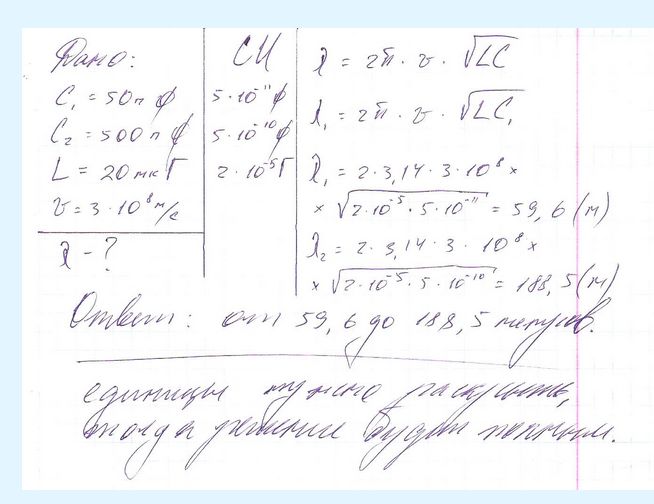 Дано:
C₁ = 50 п ф
C₂ = 500 п ф
L = 20 мк Г
v = 3 · 10⁸ м/с
λ - ?
СИ
5 · 10⁻¹¹ ф
5 · 10⁻¹⁰ ф
2 · 10⁻⁵ Г
λ = 2π · v · √LC
λ₁ = 2π · v · √LC₁
λ₁ = 2 · 3,14 · 3 · 10⁸ ×
× √2 · 10⁻⁵ · 5 · 10⁻¹¹ = 59,6 (м)
λ₂ = 2 · 3,14 · 3 · 10⁸ ×
× √2 · 10⁻⁵ · 5 · 10⁻¹⁰ = 188,5 (м)
Ответ: от 59,6 до 188,5 метров.
единицы нужно раскрыть,
тогда решение будет полным.